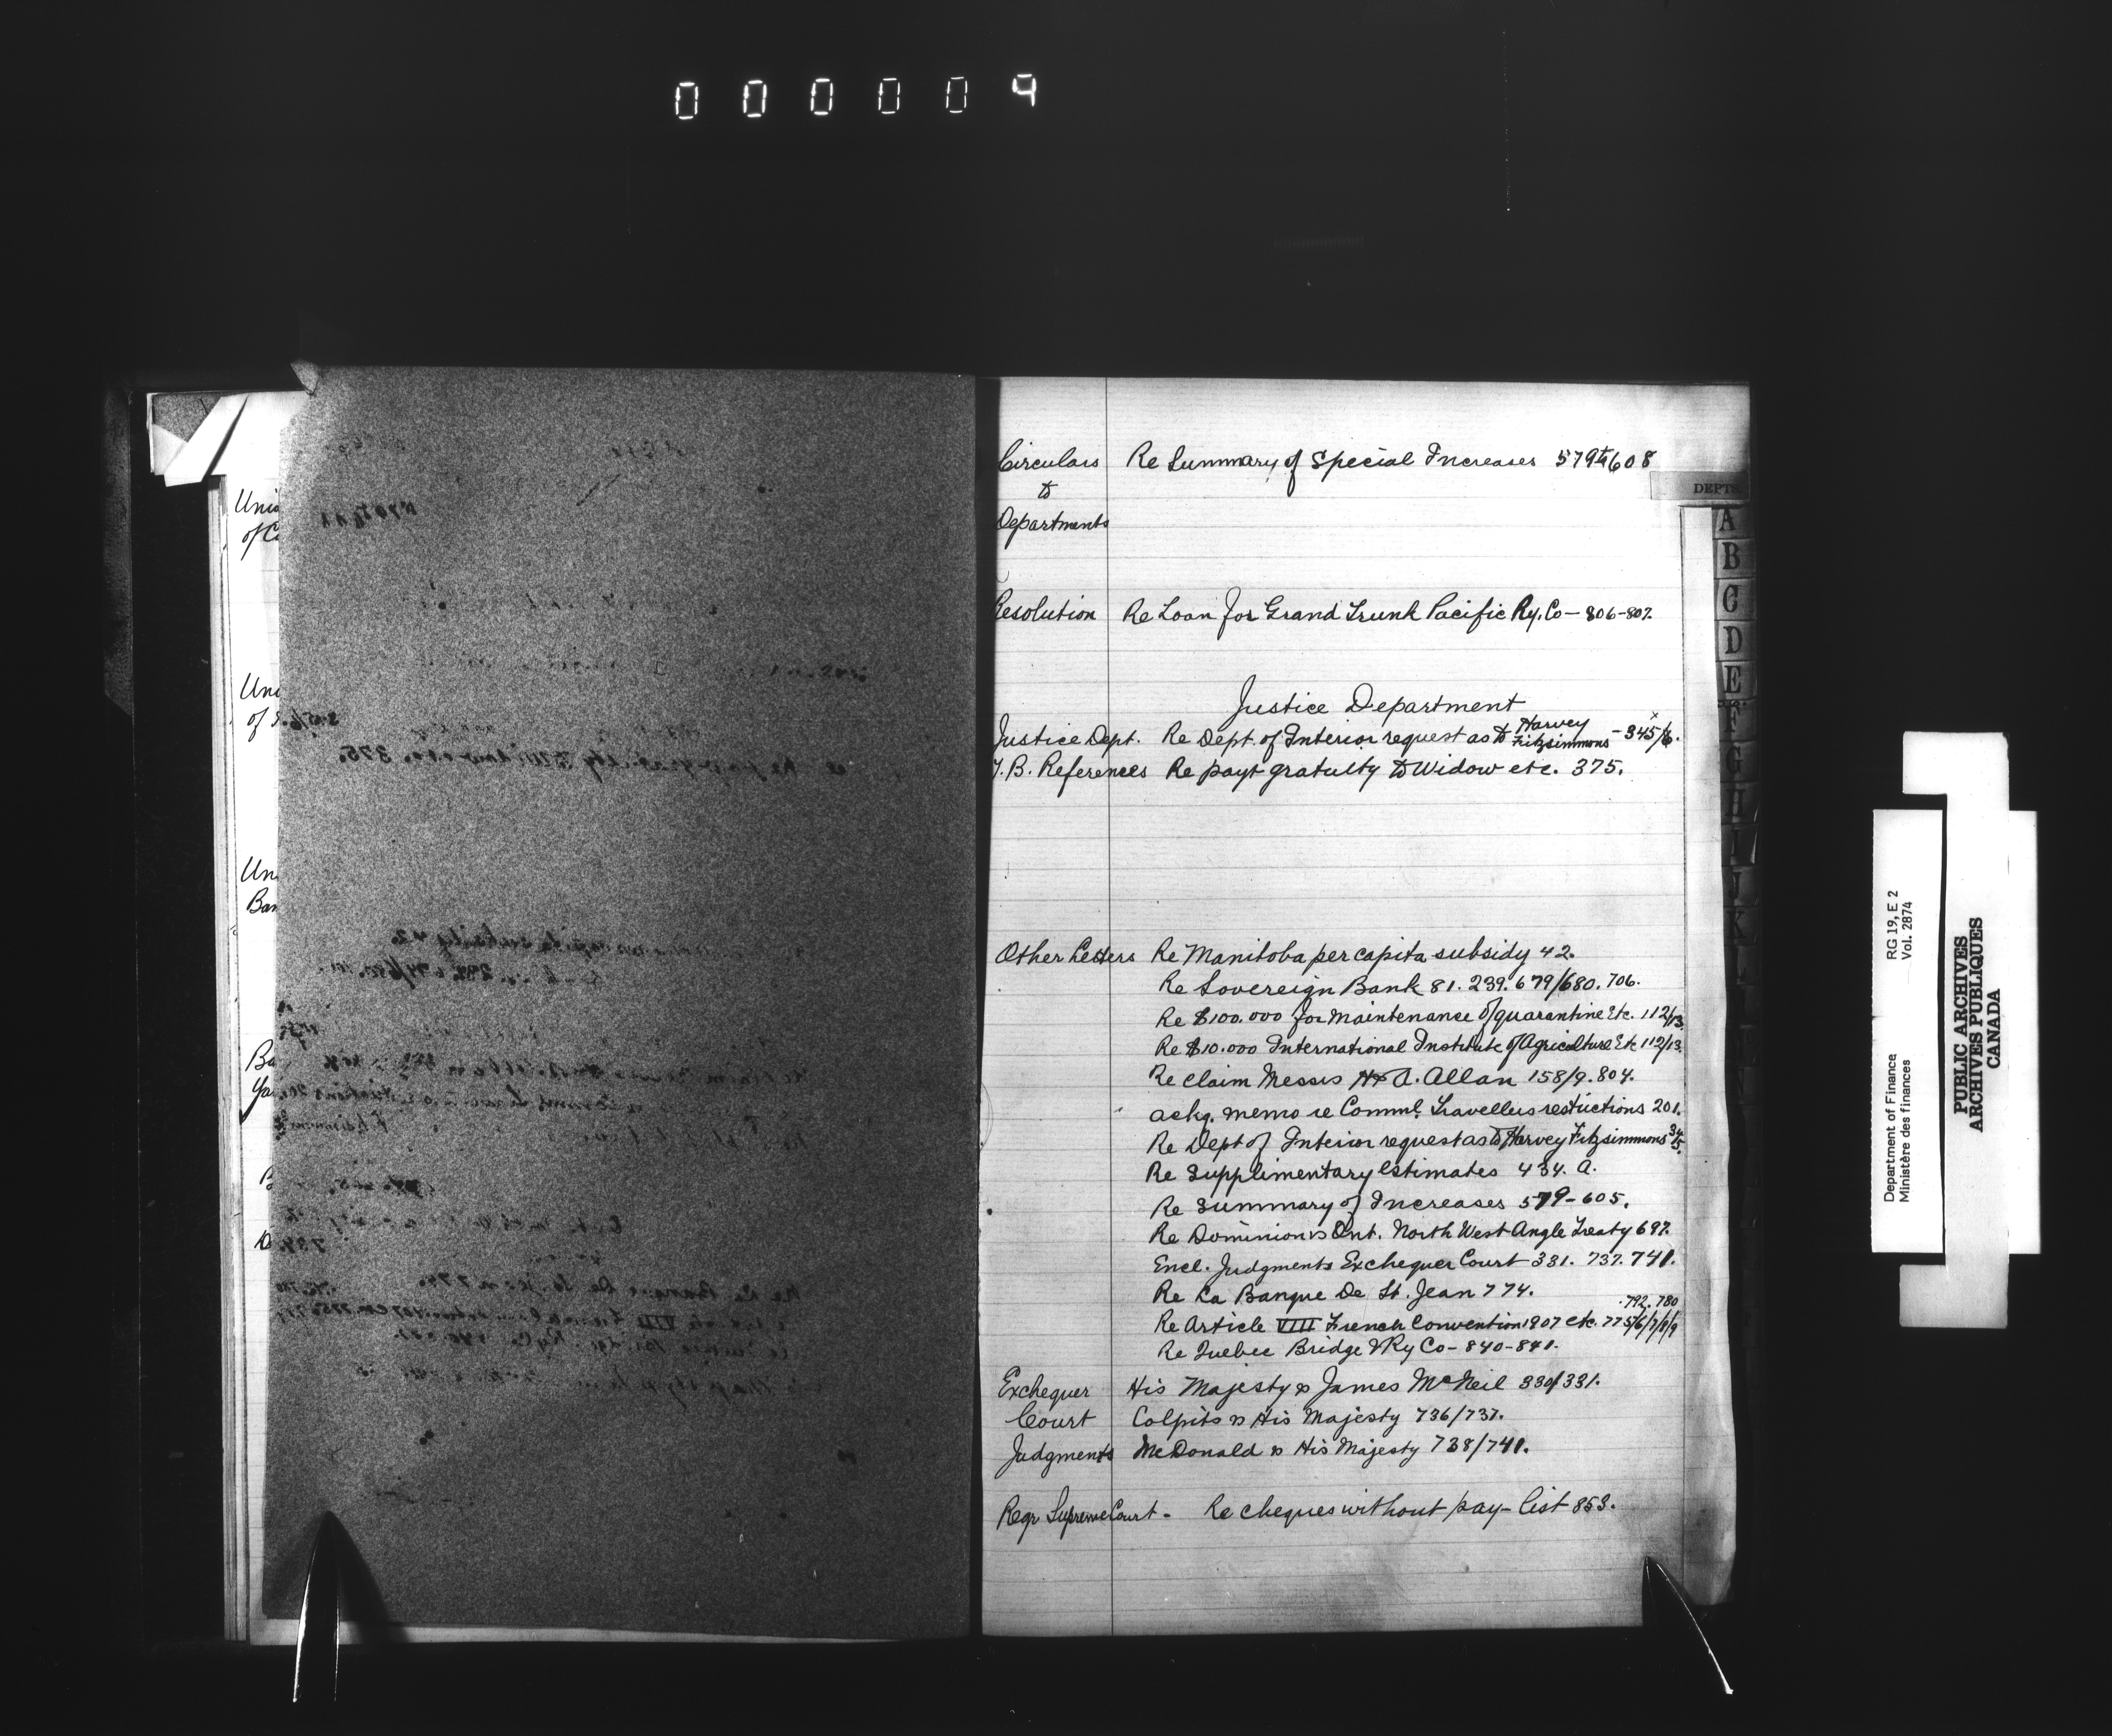 000009
Unio
of C
Uni
of S
Un
Ban
Ba
Ya
B
D
Circulars Re Summary of Special Increases 579 to 608
to
Departments
Resolution Re Loan for Grand Trunk Pacific Ry. Co — 806-807.
Justice Department
Justice Dept. Re Dept. of Interior request as to Harvey Fitzsimmons - 345/6.
T.B. References Re payt gratuity to Widow etc. 375.
Other Letters Re Manitoba per capita subsidy 42.
Re Sovereign Bank 81. 239. 679/680. 706.
Re $100.000 for Maintenance of quarantine Etc. 112/13.
Re $10.000 International Institute of Agriculture Etc 112/13.
Re Claim Messrs H & A. Allan 158/9. 804.
ackg. memo re Comml. Travellers restictions 201.
Re Dept of Interior request as to Harvey Fitzsimmons
Re Supplimentary Estimates 434. A.
Re Summary of Increases 579-605.
Re Dominion vs Ont. North West Angle Treaty 697.
Encl. Judgments Exchequer Court 331. 737. 741.
Re La Banque De St. Jean 774.
Re Article VIII French Convention 1907 etc. 775/6/7/8/9 .792. 780
Re Quebec Bridge & Ry Co - 840-841.
Exchequer His Majesty vs James McNeil 330/331.
Court Colpits vs His Majesty 736/737.
Judgments McDonald vs His Majesty 738/741.
Regr Supreme Court - Re cheques without pay-list 853.
DEPTS
A
B
C
D
E
F
G
H
I
J
K
L
Department of Finance RG 19, E 2
Ministère des finances Vol. 2874
PUBLIC ARCHIVES
ARCHIVES PUBLIQUES
CANADA